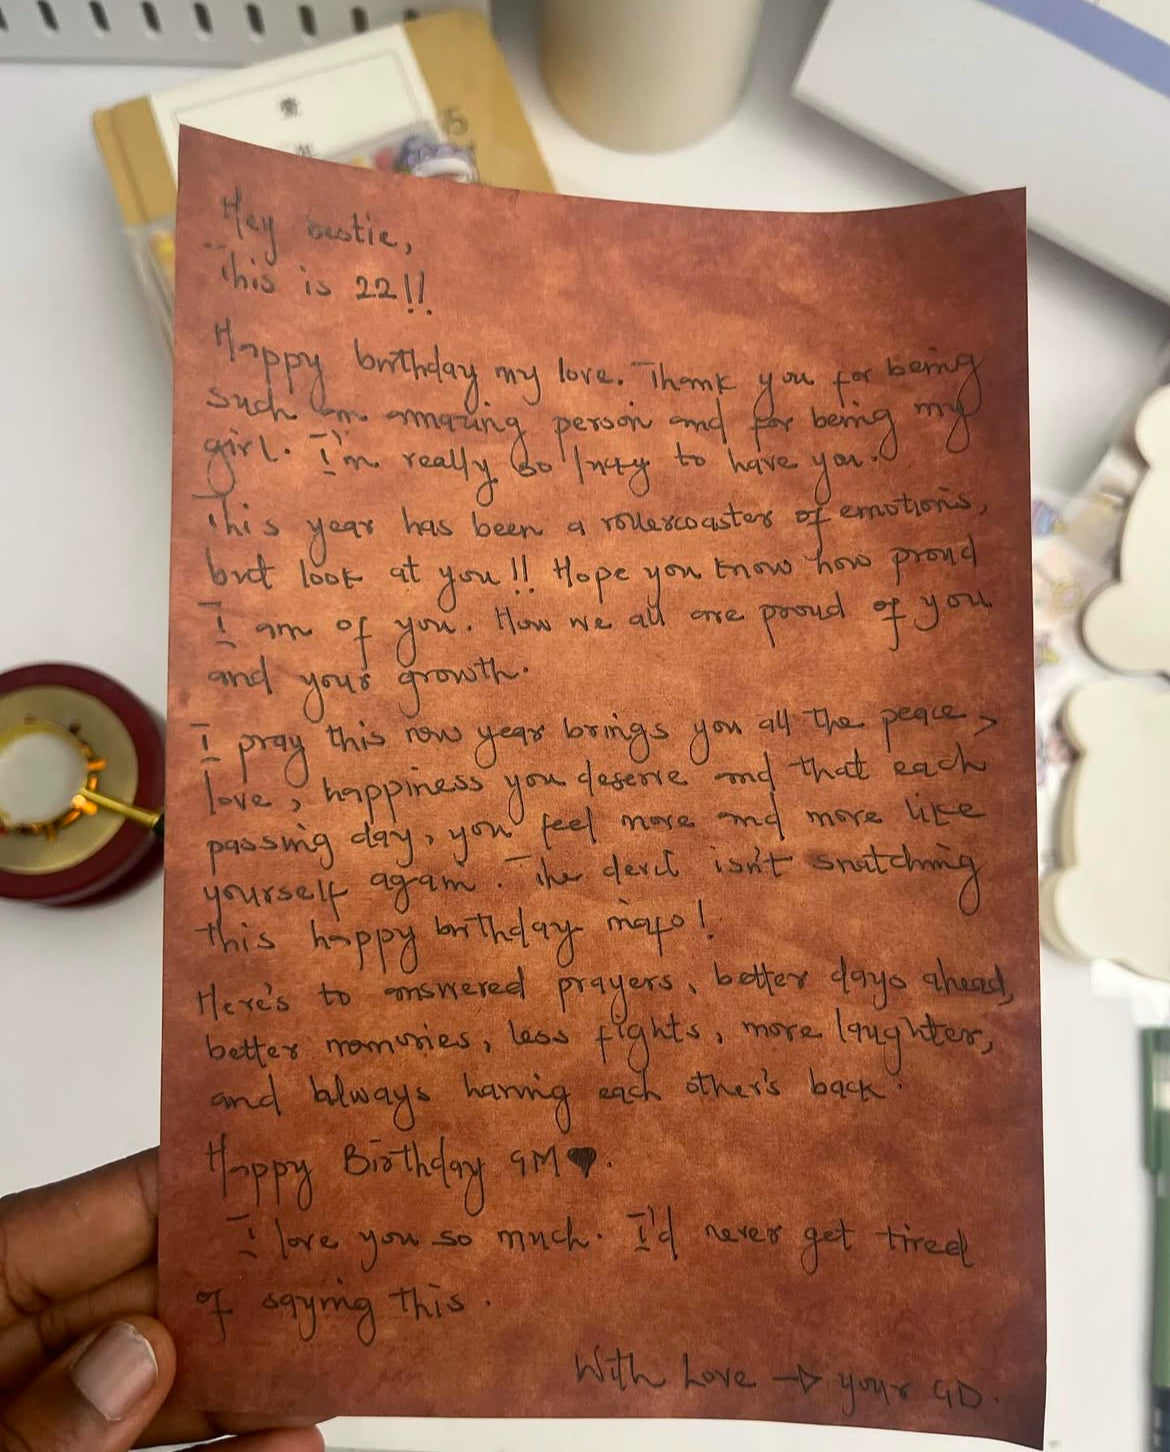 壹
5
Hey bestie,
This is 22!!
Happy birthday my love. Thank you for being
such an amazing person and for being my
girl. I'm really so lucky to have you.
This year has been a rollercoaster of emotions,
but look at you!! Hope you know how proud
I am of you. How we all are proud of you
and your growth.
I pray this new year brings you all the peace,
love, happiness you deserve and that each
passing day, you feel more and more like
yourself again. The devil isn't snatching
this happy birthday mafo!
Here's to answered prayers, better days ahead,
better memories, less fights, more laughter,
and always having each other's back.
Happy Birthday GM♥.
I love you so much. I'd never get tired
of saying this.
With Love → your GD.